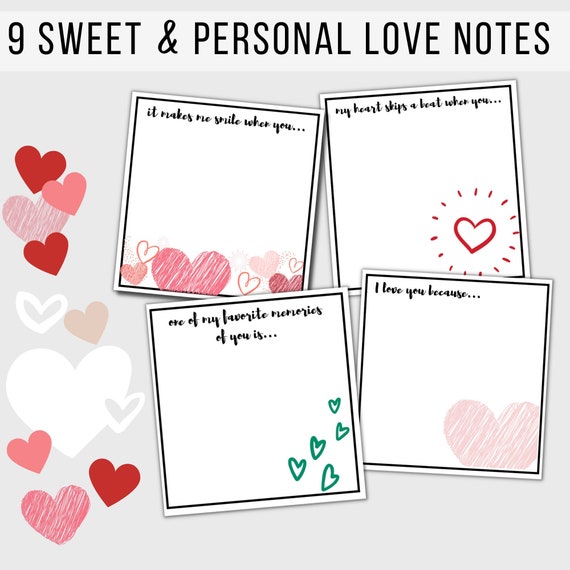 9 SWEET & PERSONAL LOVE NOTES
it makes me smile when you...
my heart skips a beat when you...
one of my favorite memories
of you is...
I love you because...